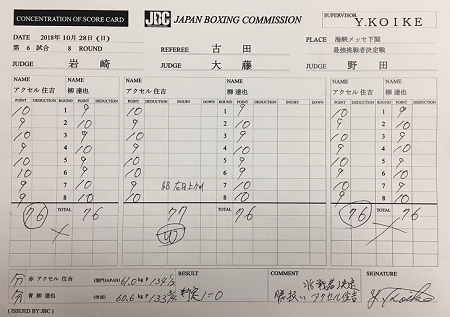 CONCENTRATION OF SCORE CARD
JBC JAPAN BOXING COMMISSION
SUPERVISOR Y.KOIKE
DATE 2018年10月28日(日)
第6試合 8 ROUND
REFEREE 古田
PLACE 海峡メッセ下関
最強挑戦者決定戦
JUDGE 岩崎 JUDGE 大藤 JUDGE 野田
NAME NAME NAME NAME NAME NAME
アクセル 住吉 柳 達也 アクセル 住吉 柳 達也 アクセル 住吉 柳 達也
POINT DEDUCTION ROUND POINT DEDUCTION POINT DEDUCTION INJURY DOWN ROUND POINT DEDUCTION INJURY DOWN POINT DEDUCTION ROUND POINT DEDUCTION
10 1 9 10 1 9 10 1 9
9 2 10 9 2 10 9 2 10
3 3 3
4 4 4
5 5 5
6 6 6
9 7 10 7 7
9 8 10 9 8 10 9 8 10
76 TOTAL 76 77 TOTAL 76 76 TOTAL 76
W
分 赤 アクセル 住吉 61.0kg 134½
分 青 柳 達也 60.6kg 133
RESULT
判定 1-0
COMMENT
挑戦者決定
勝扱い アクセル住吉
SIGNATURE
Y. Koike
( ISSUED BY JBC )